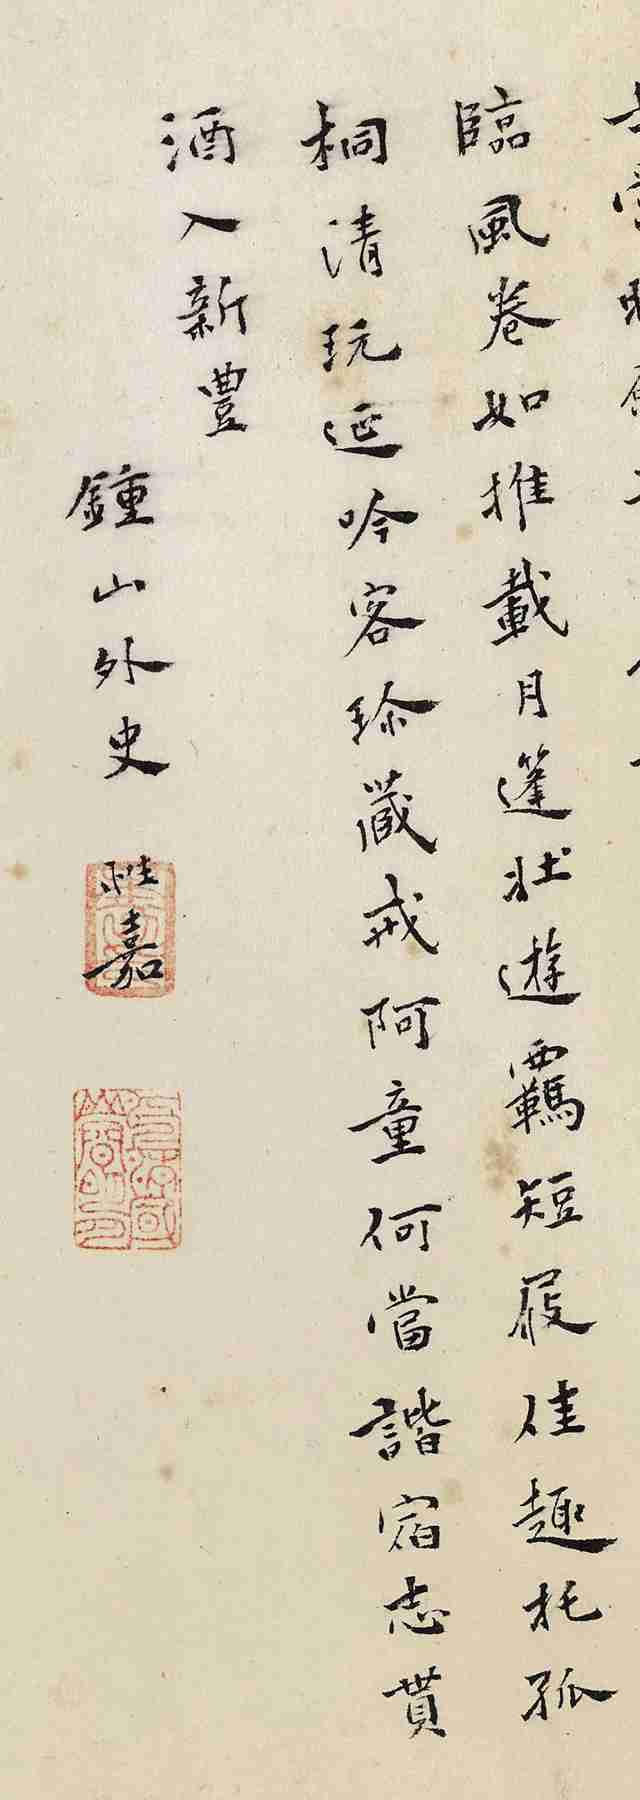 臨風卷如推載月篷壯遊羈短屐佳趣托孤
桐清玩延吟客珍藏戒阿童何當諧宿志貰
酒入新豐
鍾山外史